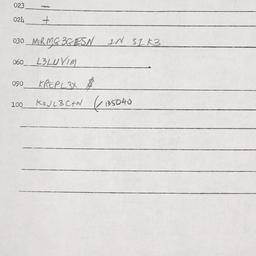 023 —
024 +
030 MRMG3GESN IN SIK3
060 L3LUVIM
090 KPEPL3X $
100 KOJL3C+N (135040